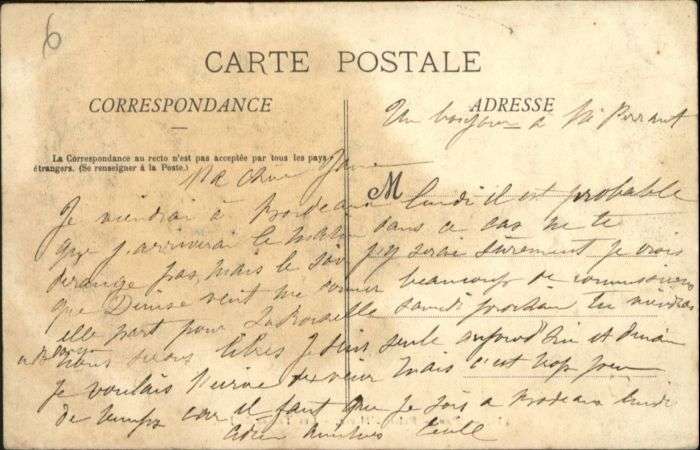 6
CARTE POSTALE
CORRESPONDANCE
ADRESSE
Un bonjour à Mr
La Correspondance au recto n'est pas acceptée par tous les pays
étrangers. (Se renseigner à la Poste.)
Ma chère
M
Je viendrai à lundi il est probable
que j'arriverai le matin dans ce cas ne te
dérange pas mais le soir j'y serai sûrement je crois
que Denise veut me donner beaucoup de commissions
elle part pour samedi prochain tu viendras
nous serons libres je suis seule aujourd'hui et
je voulais mais c'est trop peu
de temps car il faut que je sois à lundi